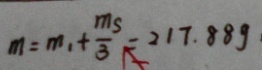 m = m₁ + ms/3 = 217.88g